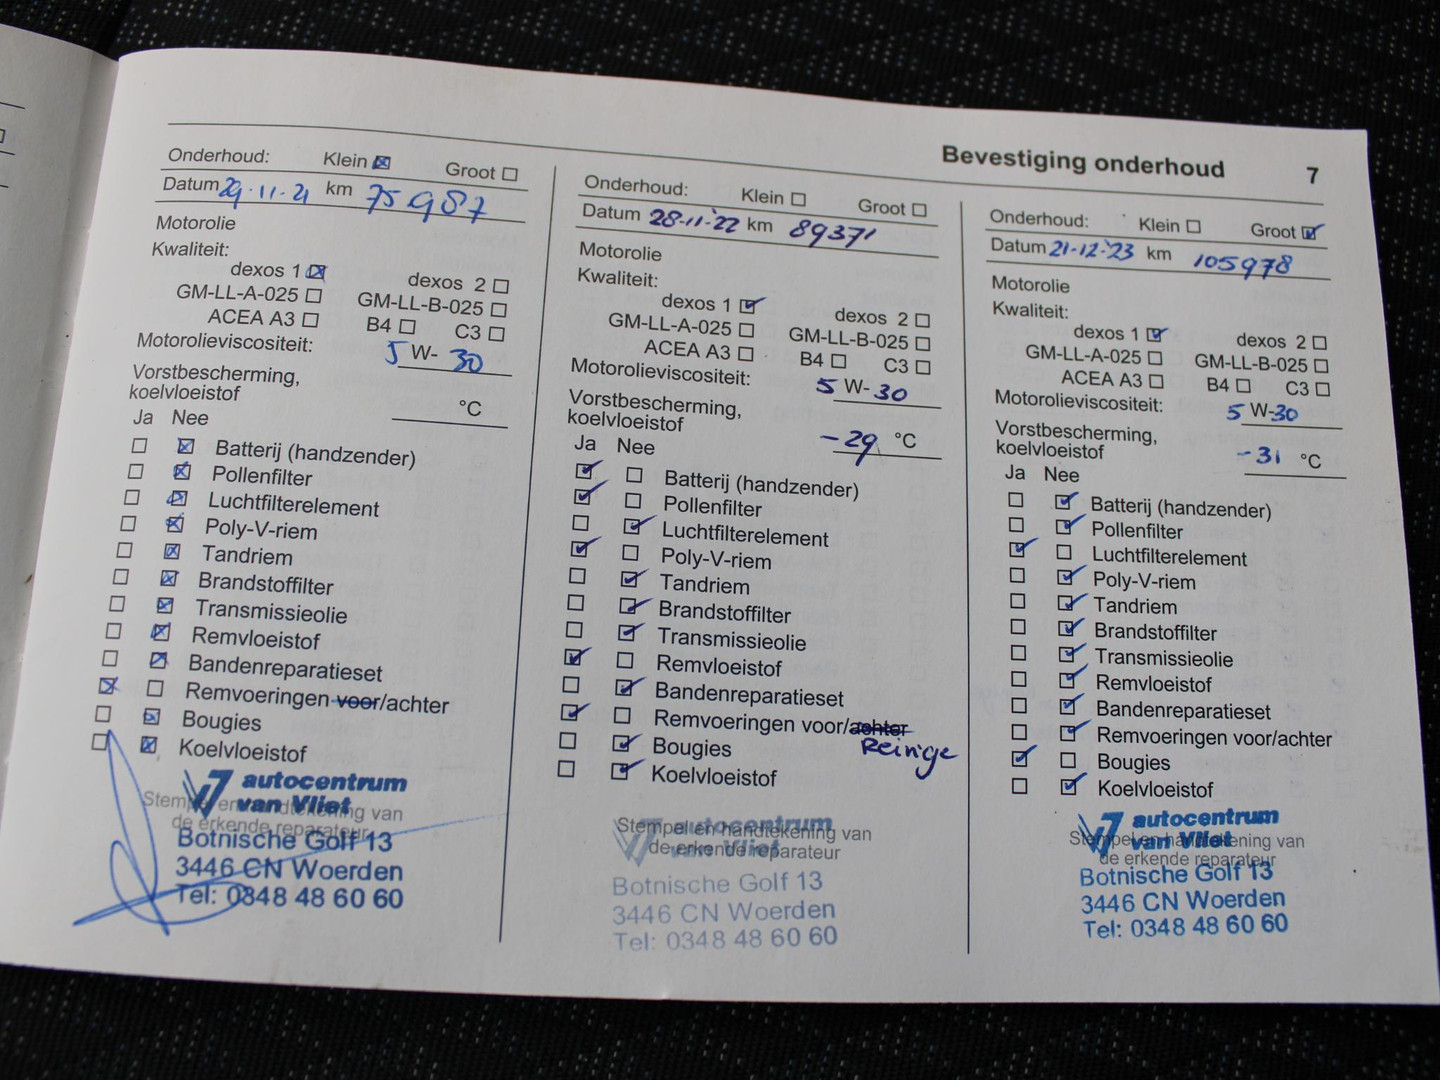 Bevestiging onderhoud 7
Onderhoud: Klein ☒ Groot ☐
Datum 29-11-21 km 75987
Motorolie
Kwaliteit:
dexos 1 ☒ dexos 2 ☐
GM-LL-A-025 ☐ GM-LL-B-025 ☐
ACEA A3 ☐ B4 ☐ C3 ☐
Motorolieviscositeit: 5 W- 30
Vorstbescherming,
koelvloeistof °C
Ja Nee
☐ ☒ Batterij (handzender)
☐ ☒ Pollenfilter
☐ ☒ Luchtfilterelement
☐ ☒ Poly-V-riem
☐ ☒ Tandriem
☐ ☒ Brandstoffilter
☐ ☒ Transmissieolie
☐ ☒ Remvloeistof
☐ ☒ Bandenreparatieset
☒ ☐ Remvoeringen voor/achter
☐ ☒ Bougies
☐ ☒ Koelvloeistof
autocentrum
van Vliet
Stempel en handtekening van
de erkende reparateur
Botnische Golf 13
3446 CN Woerden
Tel: 0348 48 60 60
Onderhoud: Klein ☐ Groot ☐
Datum 28-11-'22 km 89371
Motorolie
Kwaliteit:
dexos 1 ☑ dexos 2 ☐
GM-LL-A-025 ☐ GM-LL-B-025 ☐
ACEA A3 ☐ B4 ☐ C3 ☐
Motorolieviscositeit: 5 W-30
Vorstbescherming,
koelvloeistof -29 °C
Ja Nee
☑ ☐ Batterij (handzender)
☑ ☐ Pollenfilter
☐ ☑ Luchtfilterelement
☑ ☐ Poly-V-riem
☐ ☑ Tandriem
☐ ☑ Brandstoffilter
☐ ☑ Transmissieolie
☑ ☐ Remvloeistof
☐ ☑ Bandenreparatieset
☑ ☐ Remvoeringen voor/achter
Reinige
☐ ☑ Bougies
☐ ☑ Koelvloeistof
autocentrum
van Vliet
Stempel en handtekening van
de erkende reparateur
Botnische Golf 13
3446 CN Woerden
Tel: 0348 48 60 60
Onderhoud: Klein ☐ Groot ☑
Datum 21-12-'23 km 105978
Motorolie
Kwaliteit:
dexos 1 ☑ dexos 2 ☐
GM-LL-A-025 ☐ GM-LL-B-025 ☐
ACEA A3 ☐ B4 ☐ C3 ☐
Motorolieviscositeit: 5 W-30
Vorstbescherming,
koelvloeistof -31 °C
Ja Nee
☐ ☑ Batterij (handzender)
☐ ☑ Pollenfilter
☑ ☐ Luchtfilterelement
☐ ☑ Poly-V-riem
☐ ☑ Tandriem
☐ ☑ Brandstoffilter
☐ ☑ Transmissieolie
☐ ☑ Remvloeistof
☐ ☑ Bandenreparatieset
☐ ☑ Remvoeringen voor/achter
☑ ☐ Bougies
☐ ☑ Koelvloeistof
autocentrum
van Vliet
Stempel en handtekening van
de erkende reparateur
Botnische Golf 13
3446 CN Woerden
Tel: 0348 48 60 60